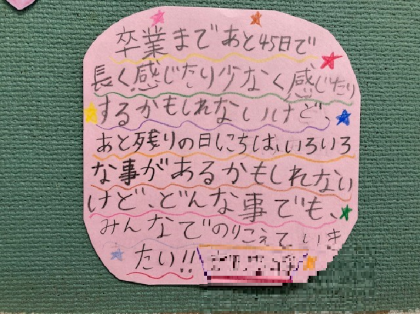 卒業まであと45日で
長く感じたり少なく感じたり
するかもしれないけど、
あと残りの日にちは、いろいろ
な事があるかもしれない
けど、どんな事でも、
みんなでのりこえていき
たい!!